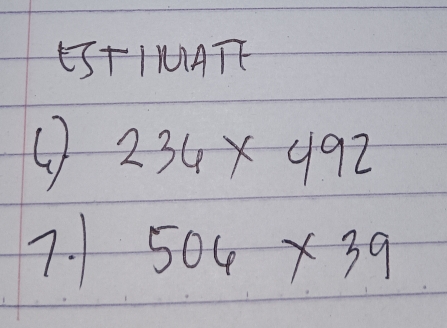 ESTIMATE
6) 236 × 492
7.) 506 × 39